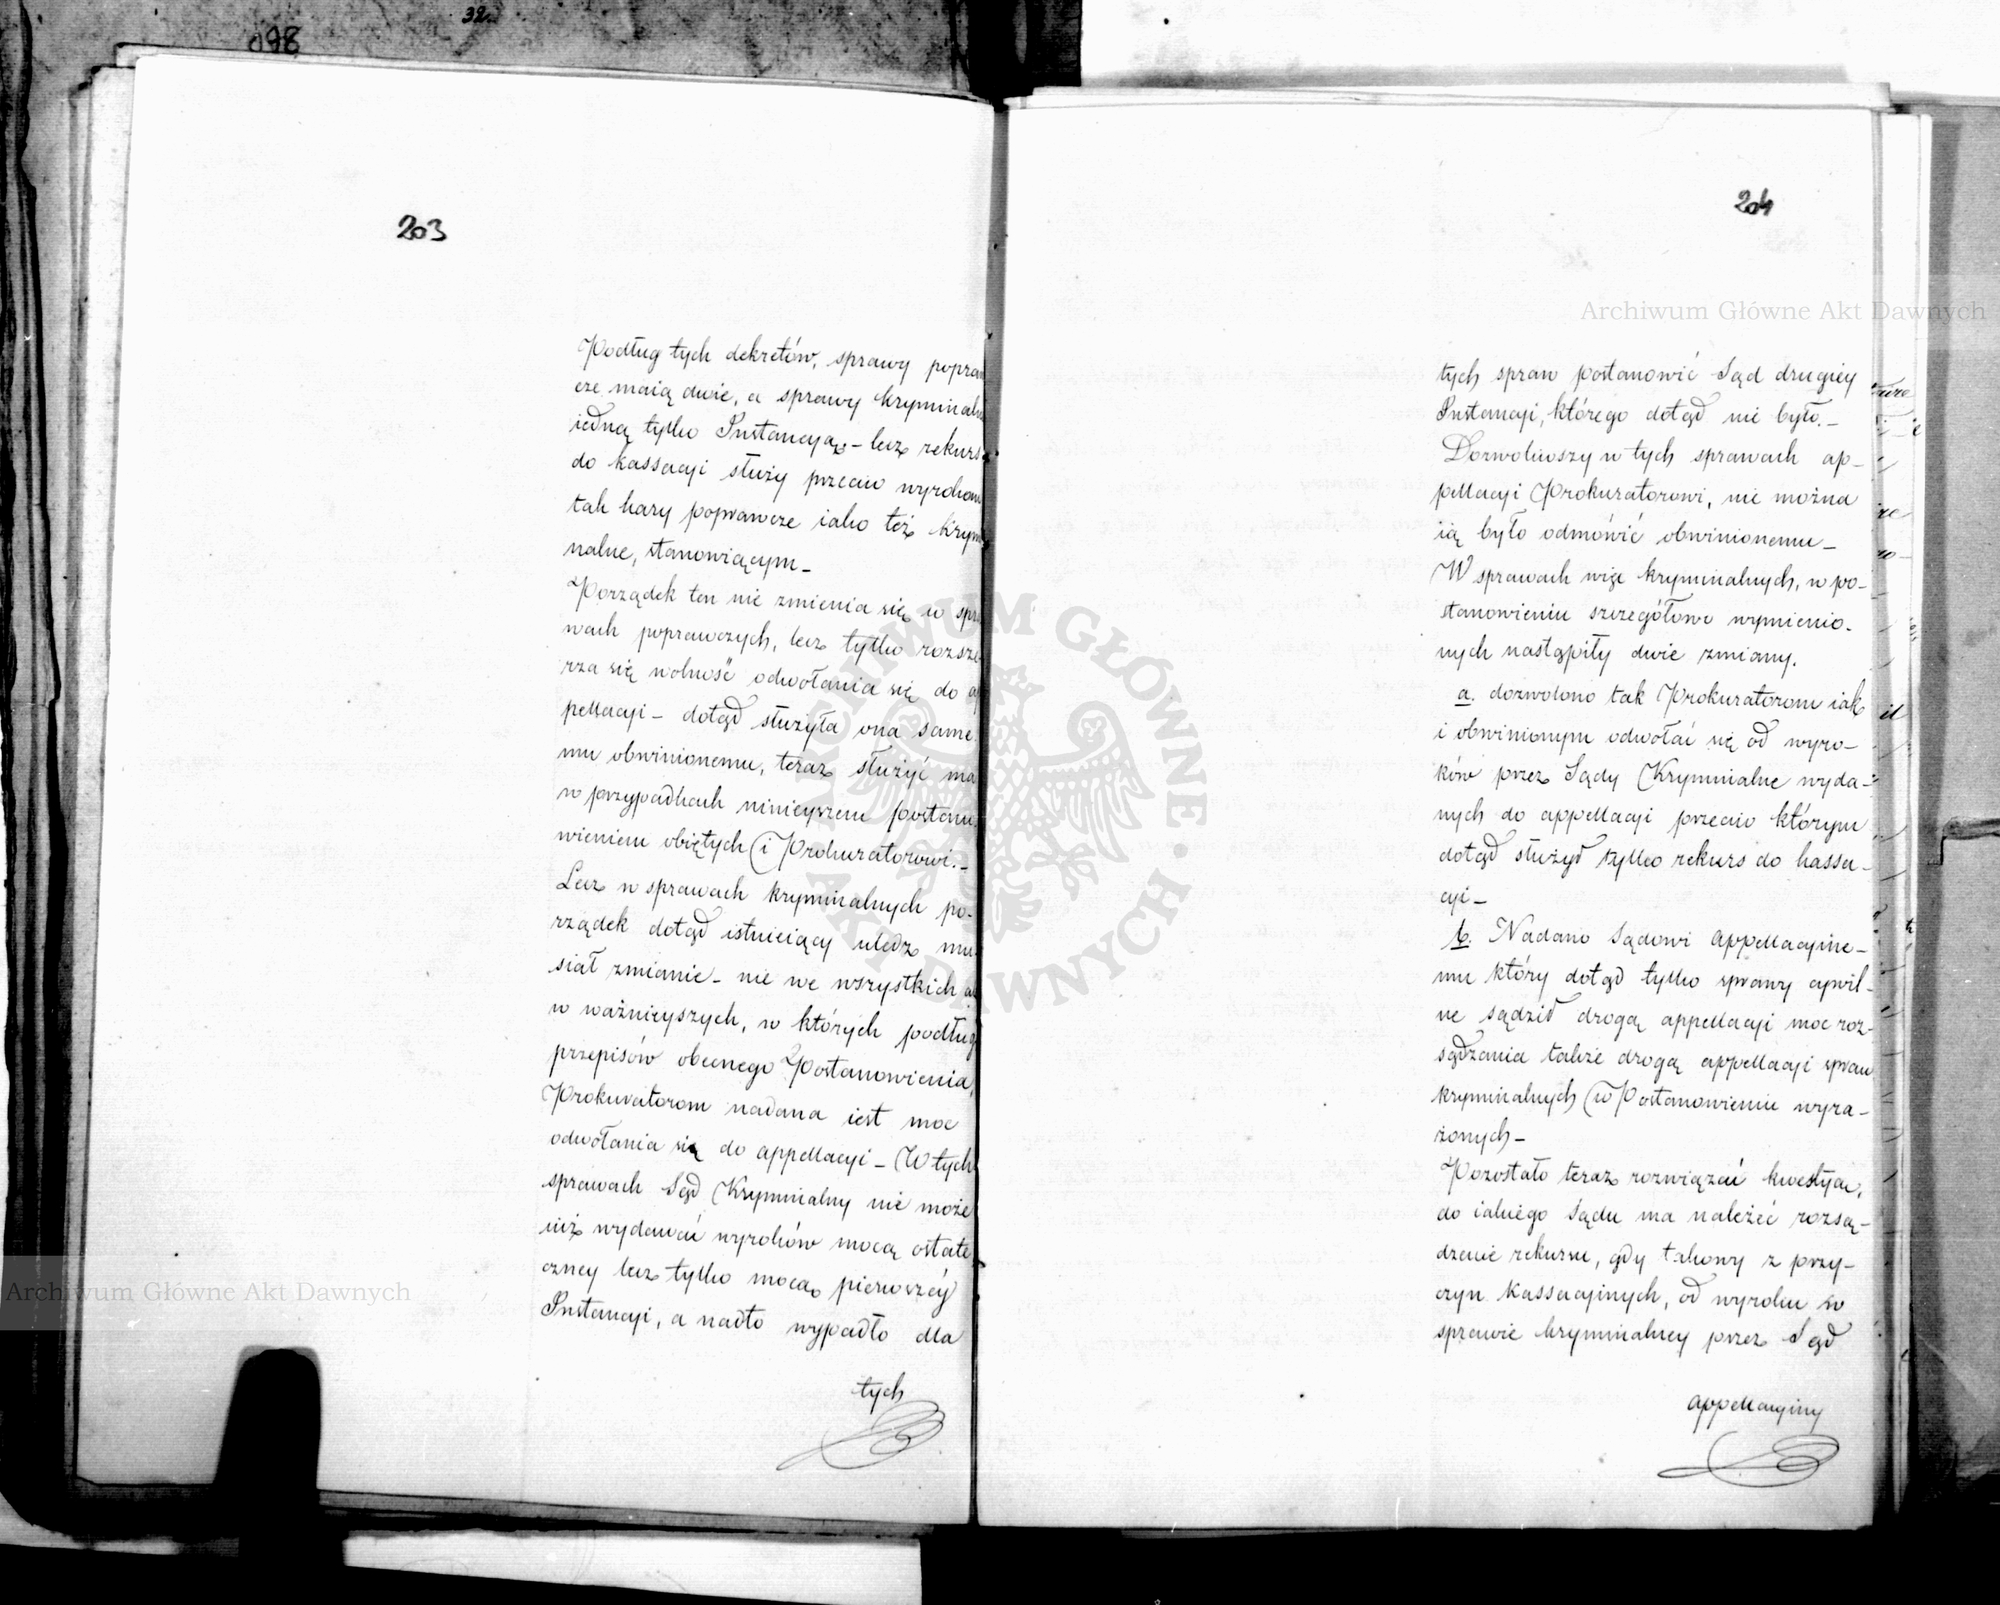 32.
098
203
Podług tych dekretów, sprawy popraw
cze maią dwie, a sprawy kryminalne
iedną tylko Instancyą, – lecz rekurs
do kassacyi służy przeciw wyrokom
tak kary poprawcze iako też krymi
nalne, stanowiącym –
Porządek ten nie zmienia się w spra
wach poprawczych, lecz tylko rozsze
rza się wolność odwołania się do ap
pellacyi – dotąd służyła ona same
mu obwinionemu, teraz służyć ma
w przypadkach ninieyszem postano
wieniem obiętych i Prokuratorowi. –
Lecz w sprawach kryminalnych po-
rządek dotąd istnieiący uledz mu
siał zmianie – nie we wszystkich a
w ważnieyszych, w których podług
przepisów obecnego Postanowienia,
Prokuratorom nadana iest moc
odwołania się do appellacyi – W tych
sprawach Sąd Kryminalny nie może
iuż wydawać wyroków mocą ostate
czney lecz tylko mocą pierwszéy
Instancyi, a nadto wypadło dla
tych
204
tych spraw postanowić Sąd drugiey
Instancyi, którego dotąd nie było. –
Dozwoliwszy w tych sprawach ap-
pellacyi Prokuratorowi, nie można
ią było odmówić obwinionemu –
W sprawach więc kryminalnych, w po-
stanowieniu szczegółowo wymienio-
nych nastąpiły dwie zmiany.
a. dozwolono tak Prokuratorom iak
i obwinionym odwołać się od wyro-
ków przez Sądy Kryminalne wyda-
nych do appellacyi przeciw którym
dotąd służył tylko rekurs do kassa-
cyi –
b. Nadano Sądowi Appellacyine-
mu który dotąd tylko sprawy cywil-
ne sądził drogą appellacyi moc roz-
sądzania także drogą appellacyi spraw
kryminalnych w Postanowieniu wyra-
żonych –
Pozostało teraz rozwiązać kwestyą,
do iakiego Sądu ma należeć rozsą-
dzenie rekursu, gdy takowy z przy-
czyn Kassacyinych, od wyroku w
sprawie kryminalney przez Sąd
appellacyiny
Archiwum Główne Akt Dawnych
Archiwum Główne Akt Dawnych
ARCHIWUM GŁÓWNE • AKT DAWNYCH •